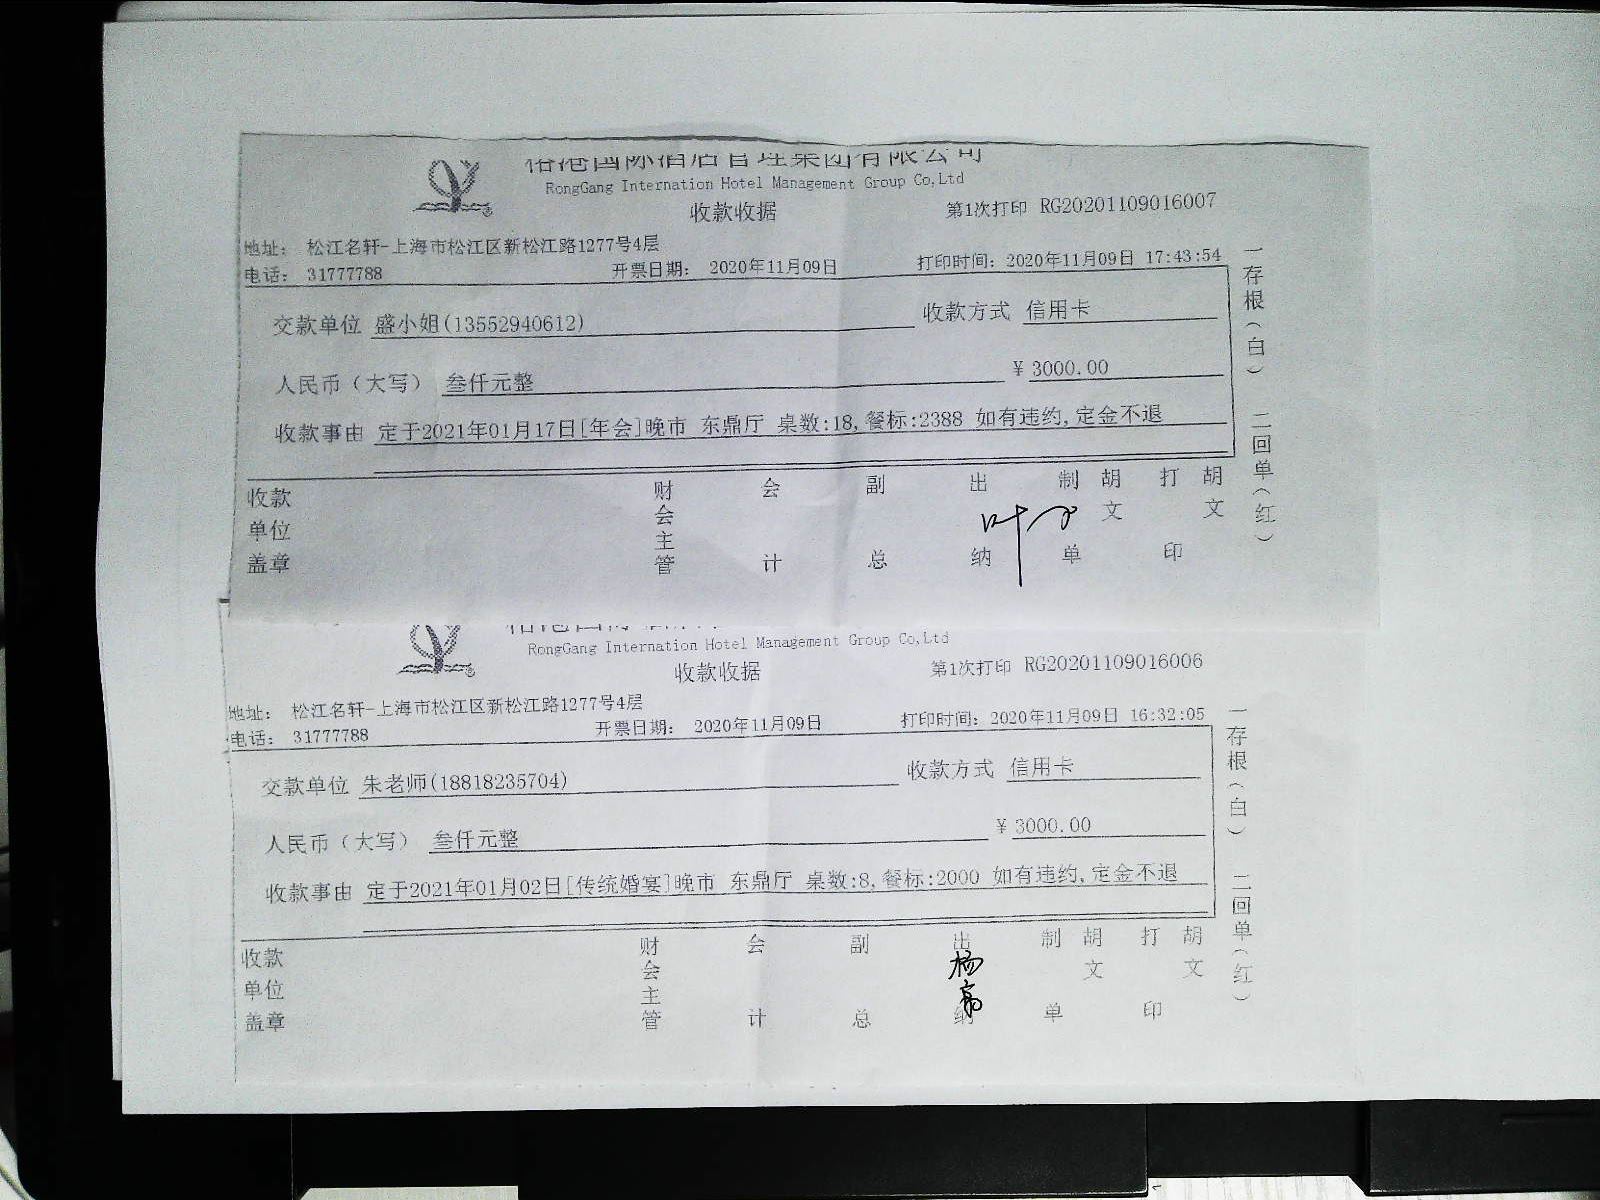 国际酒店管理集团有限公司
RongGang Internation Hotel Management Group Co,Ltd
收款收据
第1次打印 RG20201109016007
地址： 松江名轩-上海市松江区新松江路1277号4层
电话： 31777788 开票日期： 2020年11月09日 打印时间：2020年11月09日 17:43:54
交款单位 盛小姐(13552940612) 收款方式 信用卡
人民币（大写） 叁仟元整 ¥ 3000.00
收款事由 定于2021年01月17日[年会]晚市 东鼎厅 桌数:18,餐标:2388 如有违约,定金不退
收款单位盖章 财会主管 会计 副总 出纳 制单 胡文 打印 胡文
一存根（白） 二回单（红）
RongGang Internation Hotel Management Group Co,Ltd
收款收据
第1次打印 RG20201109016006
地址： 松江名轩-上海市松江区新松江路1277号4层
电话： 31777788 开票日期： 2020年11月09日 打印时间：2020年11月09日 16:32:05
交款单位 朱老师(18818235704) 收款方式 信用卡
人民币（大写） 叁仟元整 ¥ 3000.00
收款事由 定于2021年01月02日[传统婚宴]晚市 东鼎厅 桌数:8,餐标:2000 如有违约,定金不退
收款单位盖章 财会主管 会计 副总 出纳 制单 胡文 打印 胡文
一存根（白） 二回单（红）